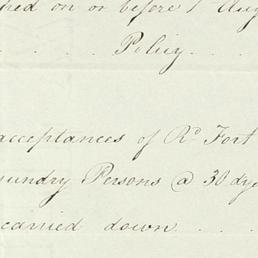 hed on or before 1 Aug
. . . . Policy . . .
acceptances of Rd. Fort
sundry Persons @ 30 dys
carried down . . .